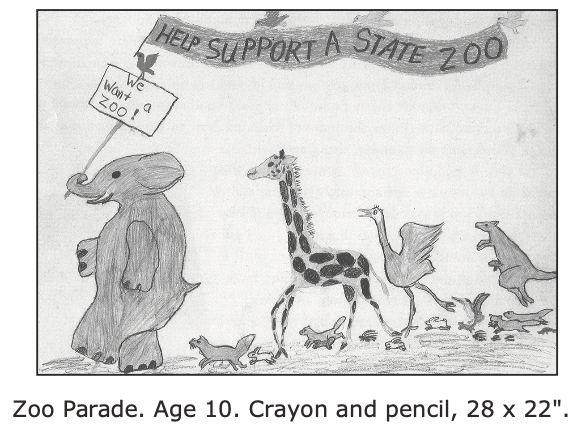 HELP SUPPORT A STATE ZOO
We
want a
ZOO!
Zoo Parade. Age 10. Crayon and pencil, 28 x 22".